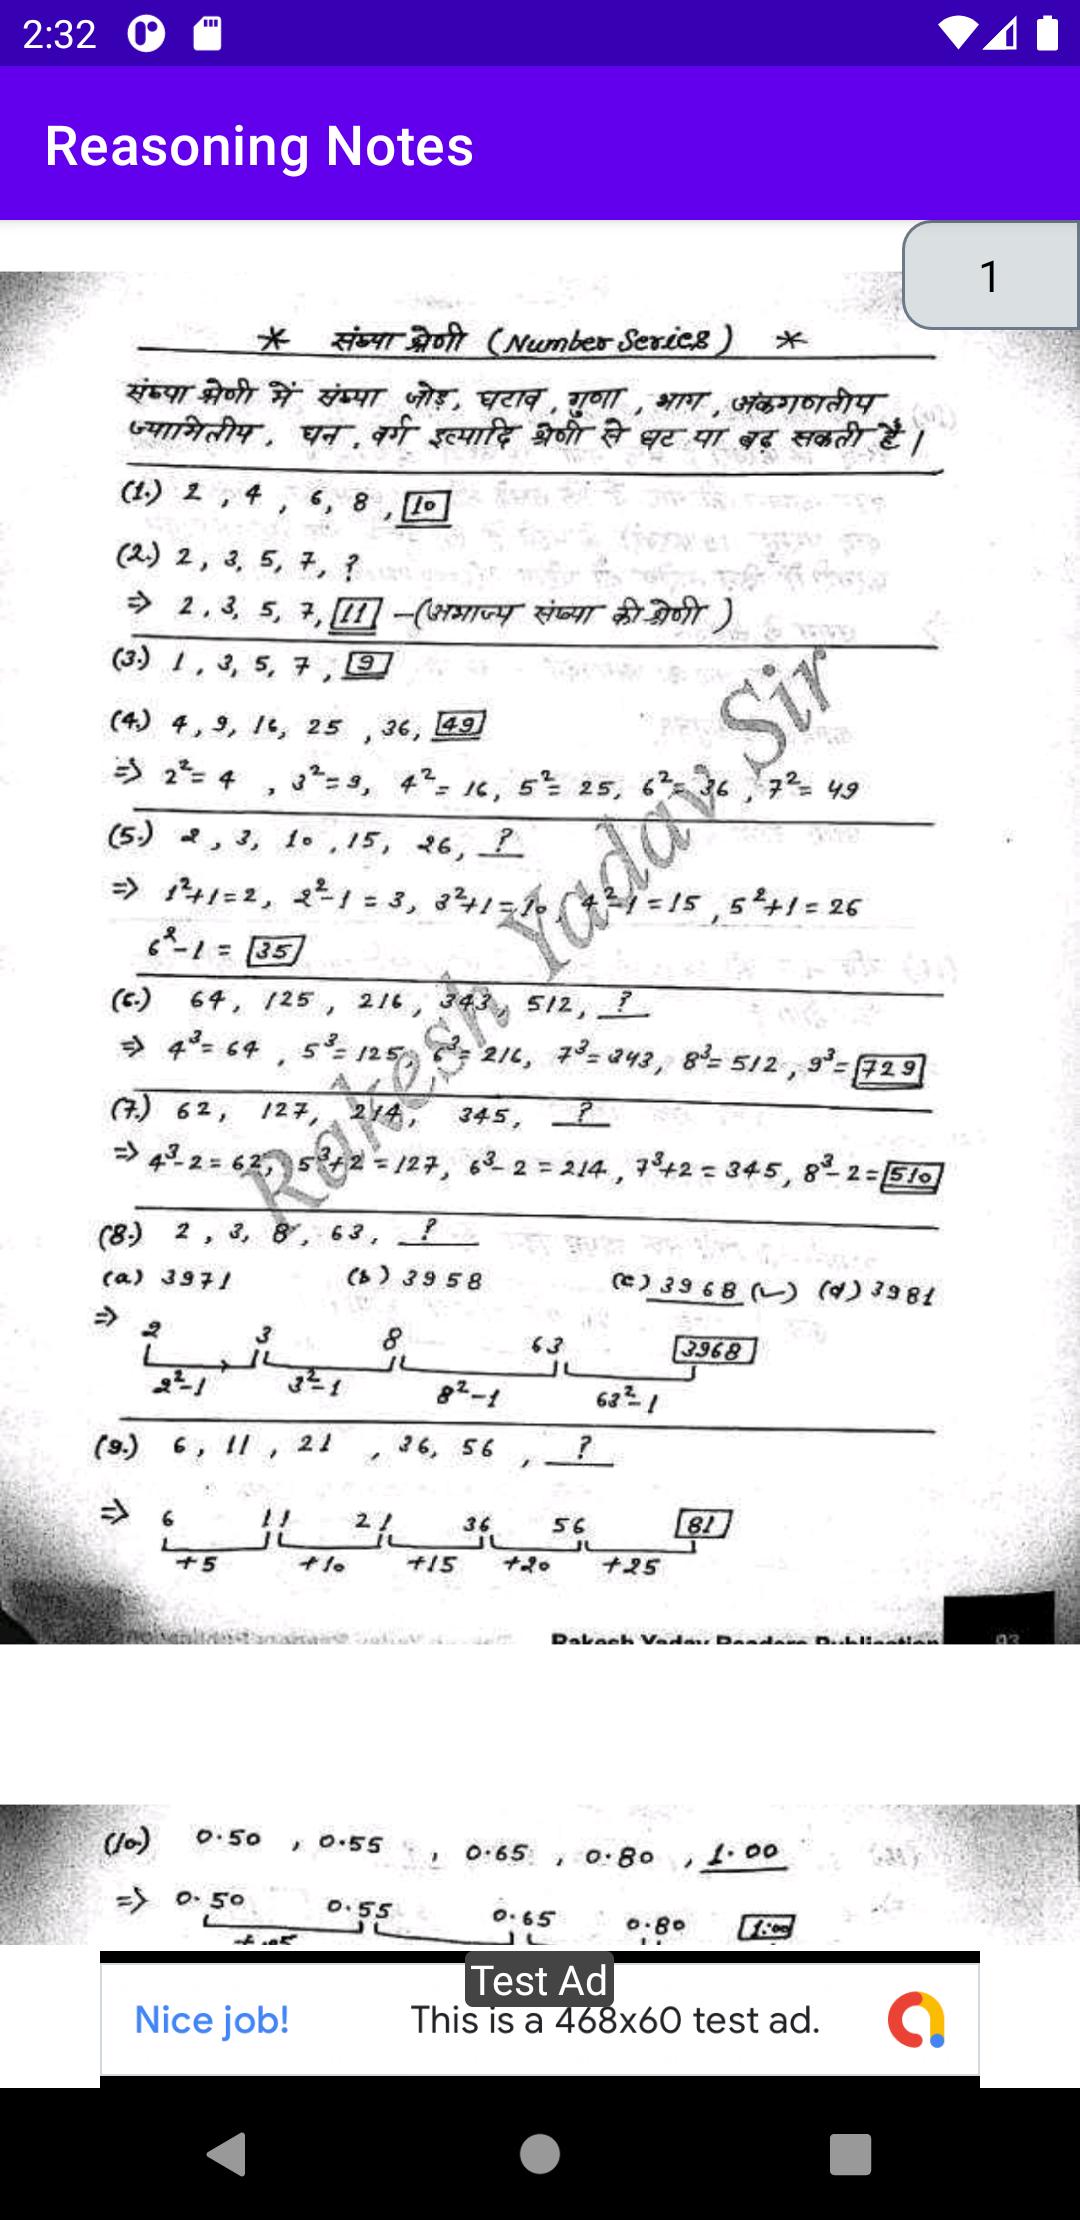 2:32
Reasoning Notes
1
* संख्या श्रेणी (Number Series) *
संख्या श्रेणी में संख्या जोड़, घटाव, गुणा, भाग, अंकगणतीय
ज्यामितीय, घन, वर्ग इत्यादि श्रेणी से घट या बढ़ सकती हैं।
(1.) 2, 4, 6, 8, 10
(2.) 2, 3, 5, 7, ?
⇒ 2, 3, 5, 7, 11 -(अभाज्य संख्या की श्रेणी)
(3.) 1, 3, 5, 7, 9
(4.) 4, 9, 16, 25, 36, 49
⇒ 2²= 4, 3²= 9, 4²= 16, 5²= 25, 6²= 36, 7²= 49
(5.) 2, 3, 10, 15, 26, ?
⇒ 1²+1=2, 2²-1 = 3, 3²+1=10, 4²-1=15, 5²+1= 26
6²-1 = 35
(6.) 64, 125, 216, 343, 512, ?
⇒ 4³= 64, 5³= 125, 6³= 216, 7³= 343, 8³= 512, 9³= 729
(7.) 62, 127, 214, 345, ?
⇒ 4³-2= 62, 5³+2 = 127, 6³-2 = 214, 7³+2 = 345, 8³-2= 510
(8.) 2, 3, 8, 63, ?
(a) 3971 (b) 3958 (c) 3968 (✓) (d) 3981
⇒ 2 3 8 63 3968
2²-1 3²-1 8²-1 63²-1
(9.) 6, 11, 21, 36, 56, ?
⇒ 6 11 21 36 56 81
+5 +10 +15 +20 +25
Rakesh Yadav Sir
Rakesh Yadav Readers Publication 93
(10.) 0.50, 0.55, 0.65, 0.80, 1.00
⇒ 0.50 0.55 0.65 0.80 1.00
Test Ad
Nice job! This is a 468x60 test ad.